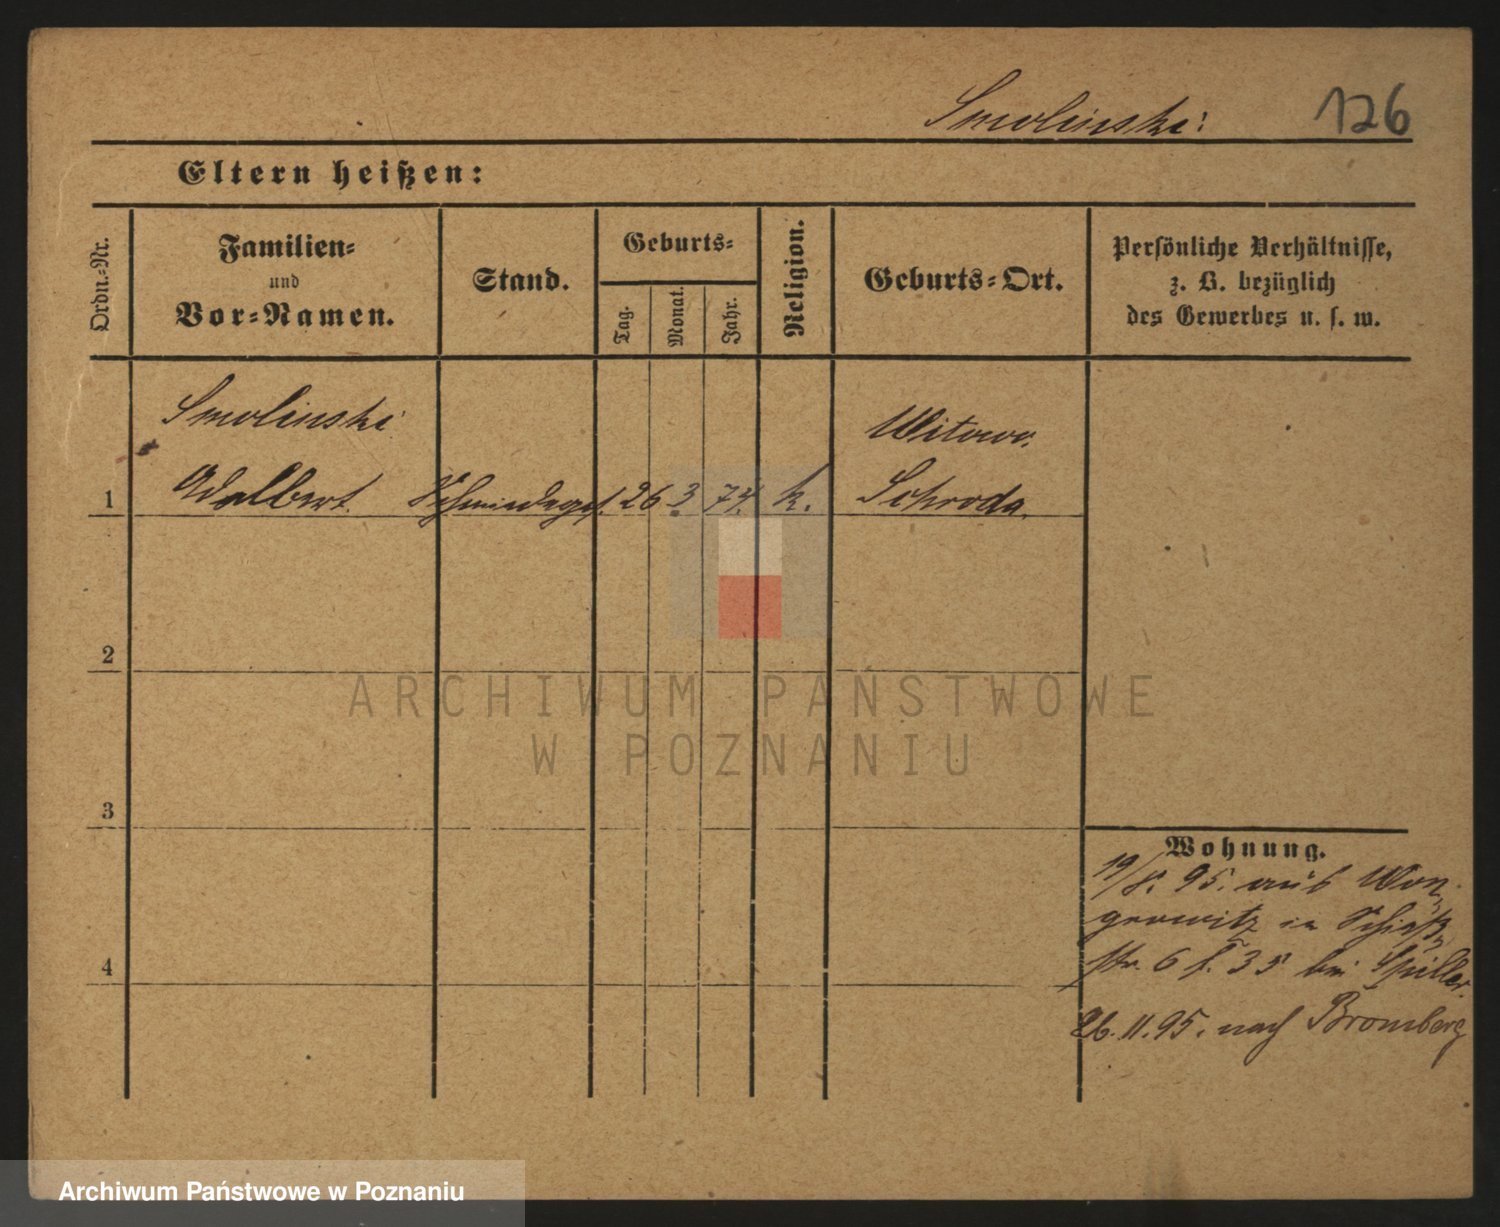 Smolinski
126
Eltern heißen:
Ordn.-Nr.
Familien-
und
Vor-Namen.
Stand.
Geburts-
Tag.
Monat.
Jahr.
Religion.
Geburts-Ort.
Persönliche Verhältnisse,
z. B. bezüglich
des Gewerbes u. s. w.
Smolinski
Witowo.
1 Adalbert. Schmiedeges. 26 3 74. k. Schroda.
2
3
4
Wohnung.
19/8. 95. aus Won-
growitz in Schieß-
str. 6 b. 35 bei Spiller.
26. 11. 95. nach Bromberg
ARCHIWUM PAŃSTWOWE
W POZNANIU
Archiwum Państwowe w Poznaniu